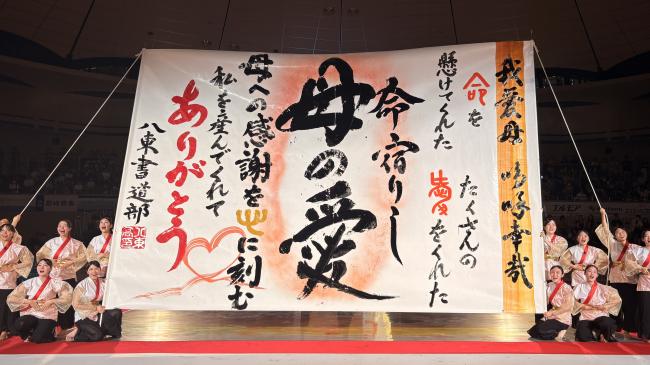 我愛母 嗚呼幸哉
命を
懸けてくれた
たくさんの
をくれた
命宿りし
母の愛
母への感謝を心に刻む
私を産んでくれて
ありがとう
八東書道部
エルモア